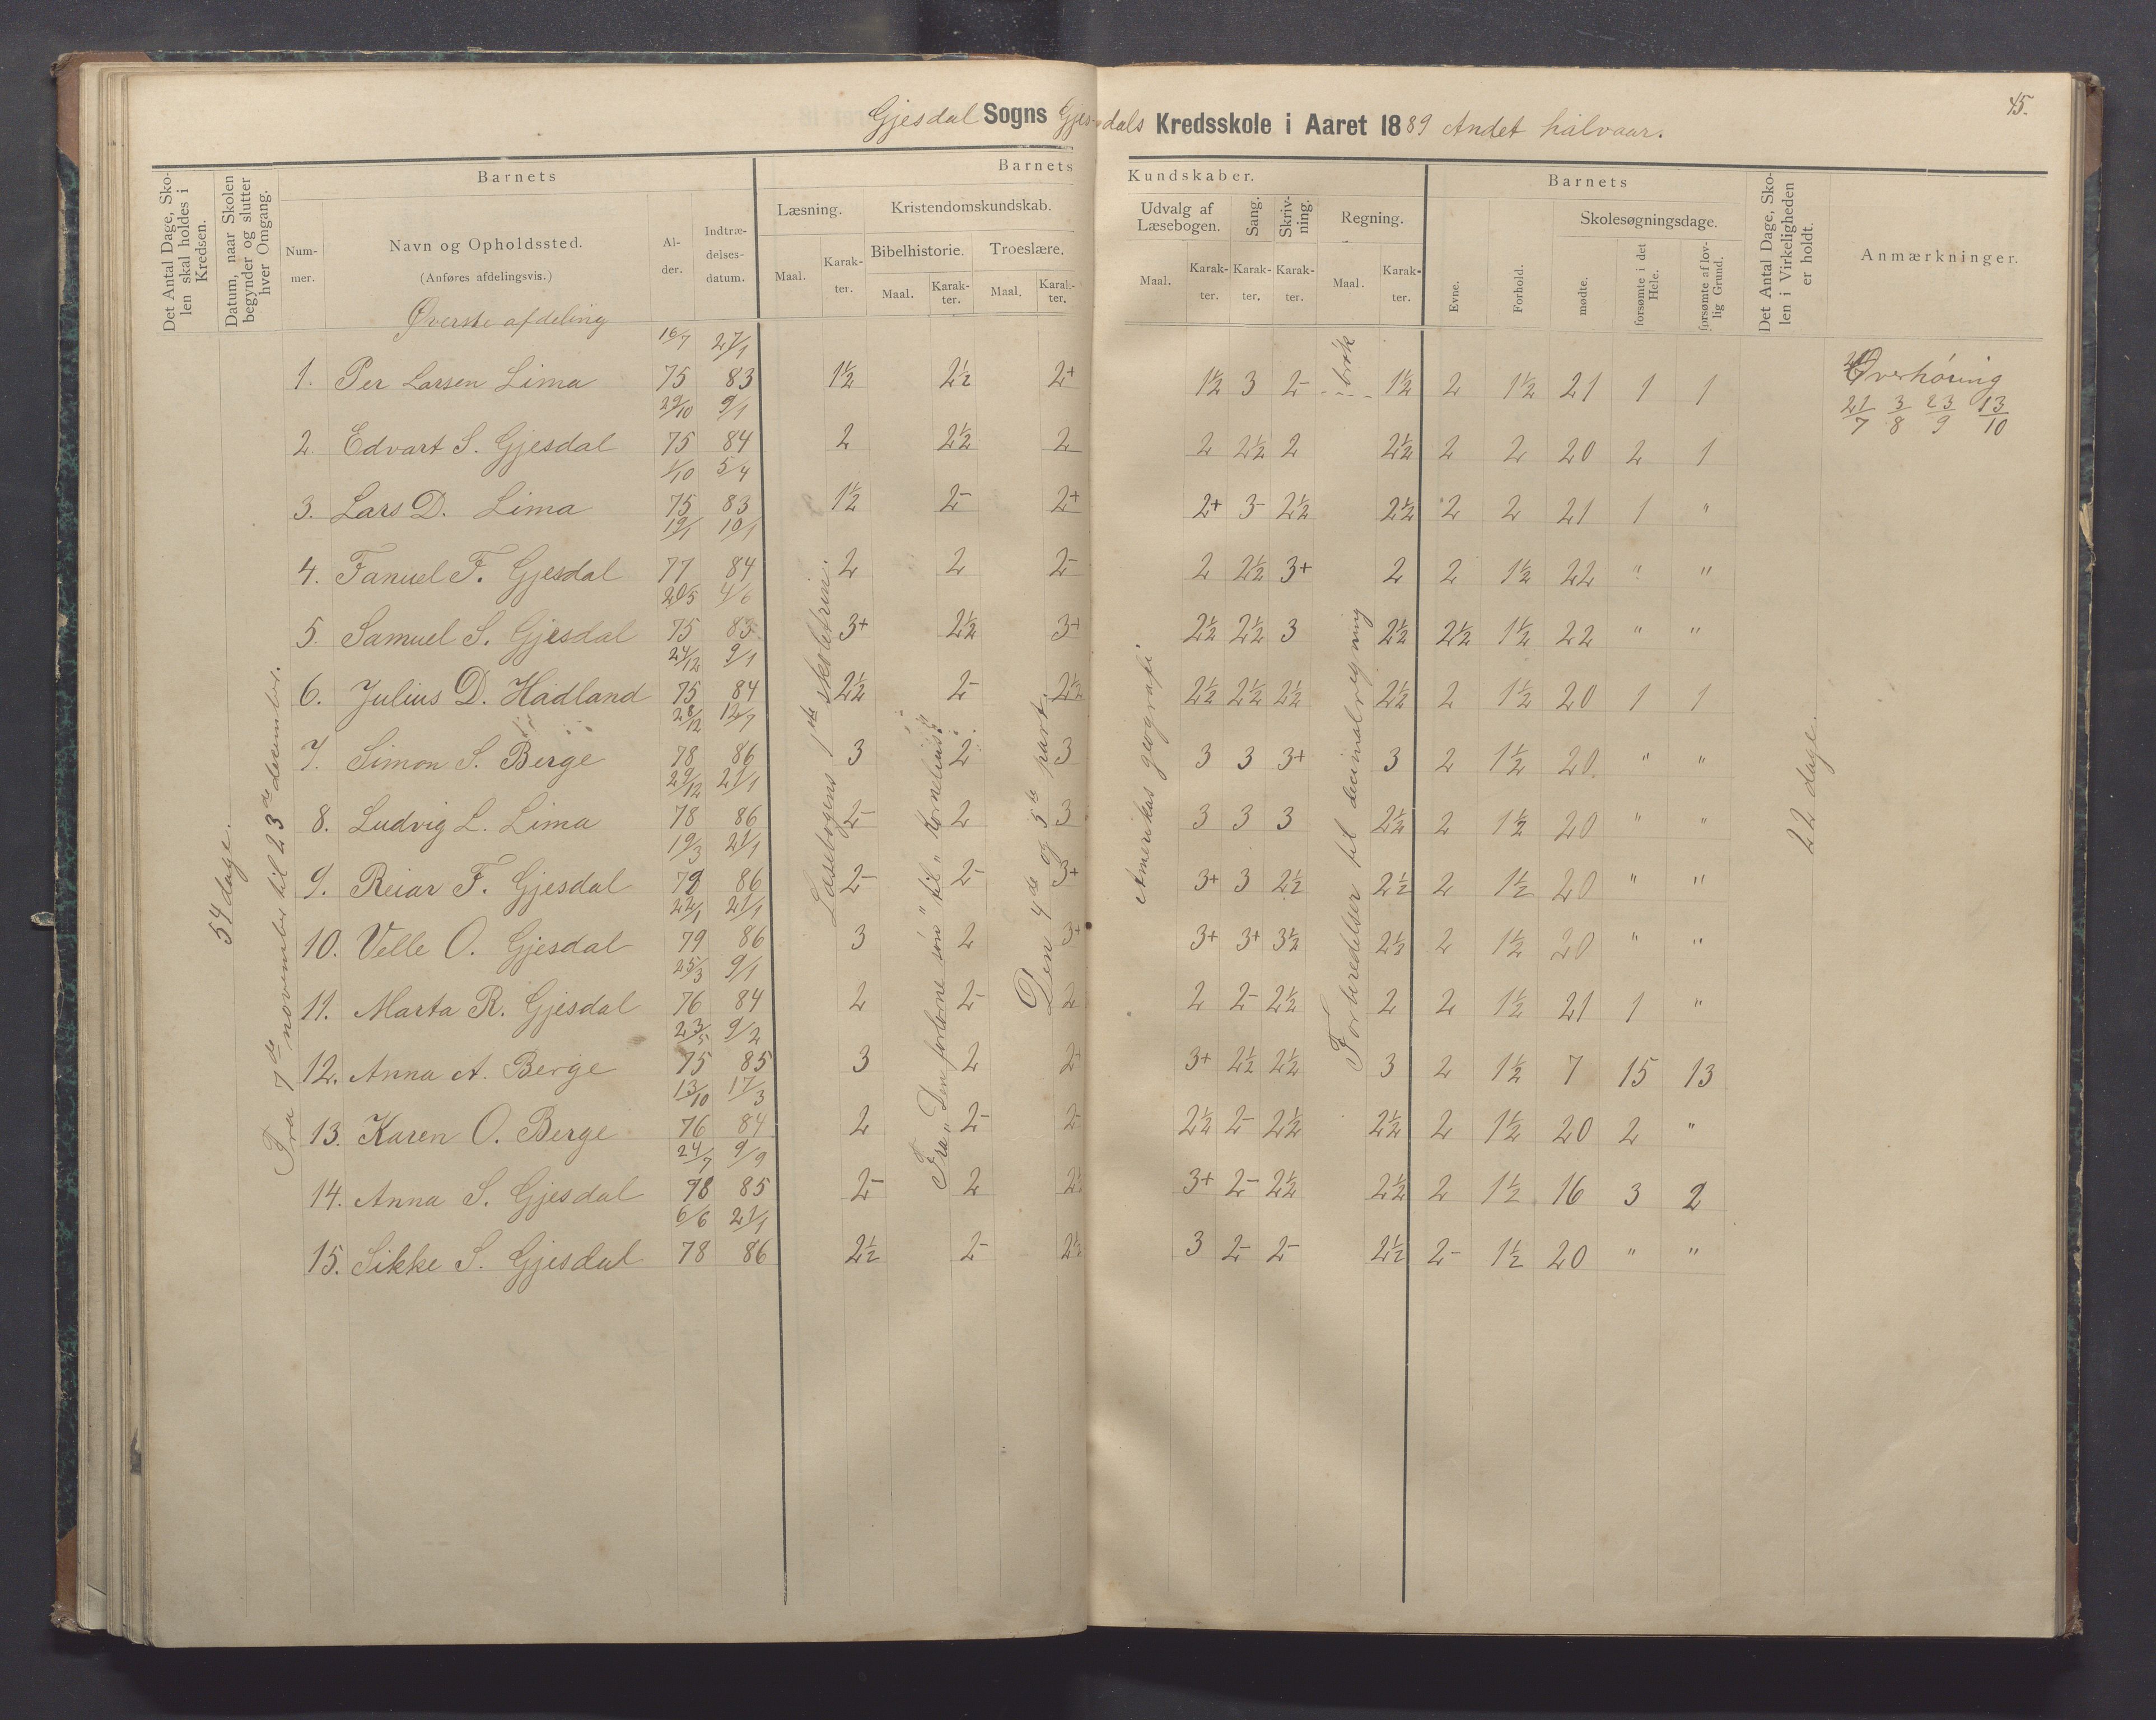 45.
Gjesdal Sogns Gjesdals Kredsskole i Aaret 1889 Andet halvaar.
Det Antal Dage, Skolen skal holdes i Kredsen.
Datum, naar Skolen begynder og slutter hver Omgang.
Barnets
Nummer.
Navn og Opholdssted.
(Anføres afdelingsvis.)
Alder.
Indtrædelsesdatum.
Barnets Kundskaber.
Læsning.
Maal.
Karakter.
Kristendomskundskab.
Bibelhistorie.
Maal.
Karakter.
Troeslære.
Maal.
Karakter.
Udvalg af Læsebogen.
Maal.
Karakter.
Sang.
Karakter.
Skrivning.
Karakter.
Regning.
Maal.
Karakter.
Barnets
Evne.
Forhold.
Skolesøgningsdage.
mødte.
forsømte i det Hele.
forsømte af lovlig Grund.
Det Antal Dage, Skolen i Virkeligheden er holdt.
Anmærkninger.
Øverste afdeling
54 dage.
Fra 7de november til 23de december.
Læsebogens 1ste skoletrin.
Fra "Den fortorne søn" til "Kornelius"
Den 4de og 5te part.
Amerikas geografi
brøk
Forberedelser til decimalregning
22 dage.
Overhøring
21/7 3/8 23/9 13/10
1. Per Larsen Lima 16/7 75 21/1 83 1½ 2½ 2+ 1½ 3 2- 1½ 2 1½ 21 1 1
2. Edvart S. Gjesdal 29/10 75 9/1 84 2 2½ 2 2 2½ 2 2½ 2 2 20 2 1
3. Lars D. Lima 1/10 75 5/4 83 1½ 2- 2+ 2+ 3- 2½ 2½ 2 2 21 1 "
4. Fanuel F. Gjesdal 19/1 77 10/1 84 2 2 2- 2 2½ 3+ 2 2 1½ 22 " "
5. Samuel S. Gjesdal 20/5 75 4/6 83 3+ 2½ 3+ 2½ 2½ 3 2½ 2½ 1½ 22 " "
6. Julius D. Hadland 24/12 75 9/1 84 2½ 2- 2½ 2½ 2½ 2½ 2½ 2 1½ 20 1 1
7. Simon S. Berge 28/12 78 12/7 86 3 2- 3 3 3 3+ 3 2 1½ 20 " "
8. Ludvig L. Lima 29/12 78 21/1 86 2- 2 3 3 3 3 2½ 2 1½ 20 " "
9. Reiar F. Gjesdal 19/3 79 21/1 86 2- 2- 3+ 3+ 3 2½ 2½ 2 1½ 20 " "
10. Velle O. Gjesdal 22/1 79 21/1 86 3 2 3+ 3+ 3+ 3½ 2½ 2 1½ 20 " "
11. Marta R. Gjesdal 25/3 76 9/1 84 2 2- 2 2 2- 2½ 2 2 1½ 21 1 "
12. Anna A. Berge 23/5 75 9/2 85 3 2 2+ 3+ 2½ 2½ 3 2 1½ 7 15 13
13. Karen O. Berge 13/10 76 17/3 84 2 2- 2- 2½ 2- 2½ 2½ 2 1½ 20 2 "
14. Anna S. Gjesdal 24/7 78 9/9 85 2- 2 2½ 3+ 2- 2½ 2½ 2 1½ 16 3 2
15. Sikke S. Gjesdal 6/6 78 21/1 86 2½ 2- 2½ 3 2- 2- 2½ 2- 1½ 20 " "